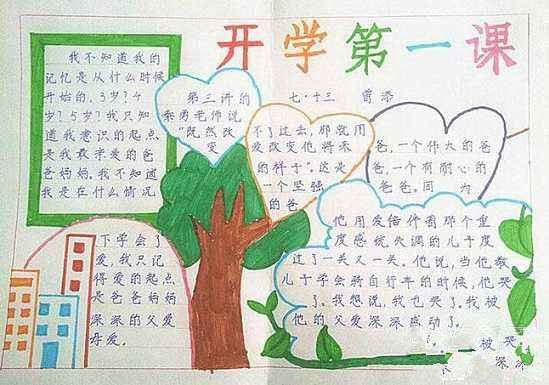 开学第一课
七.十三
曾添
我不知道我的
记忆是从什么时候
开始的，3岁？4
岁？5岁？我只知
道我意识的起点
是我最亲爱的爸
爸妈妈。我不知道
我是在什么情况
下学会了
爱，我只记
得爱的起点
是爸爸妈妈
深深的父爱
母爱。
第三讲的
乘勇老师说
“既然改
变
不了过去，那就用
爱改变他将来
的样子”。这是
一个坚强
的爸
爸，一个伟大的爸
爸，一个有耐心的
爸爸。同
为
他用爱陪伴着那个重
度感统失调的儿子度
过了一关又一关。他说，当他教
儿子学会骑自行车的时候，他哭
了。我想说，我也哭了。我被
他的父爱深深感动了。
被
深深